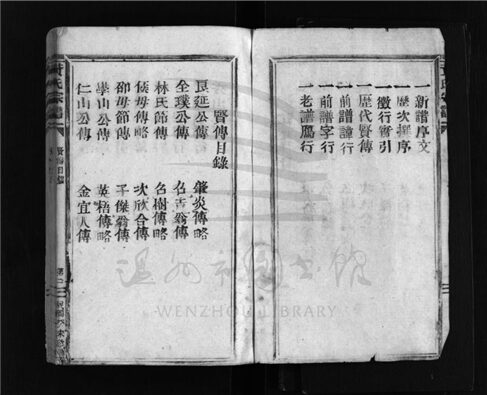 一 新譜序文
一 歷次譜序
一 徵行實引
一 歷代賢傳
一 前譜諱行
一 前譜字行
一 老譜鴈行
賢傳目錄
良延公傳
肇炎傳略
全璞公傳
林氏節傳
名樹傳略
侯母傳略
次欣合傳
邵母節傳
子傑翁傳
學山公傳
英梧傳略
仁山公傳
金宜人傳
温州市圖書館
WENZHOU LIBRARY